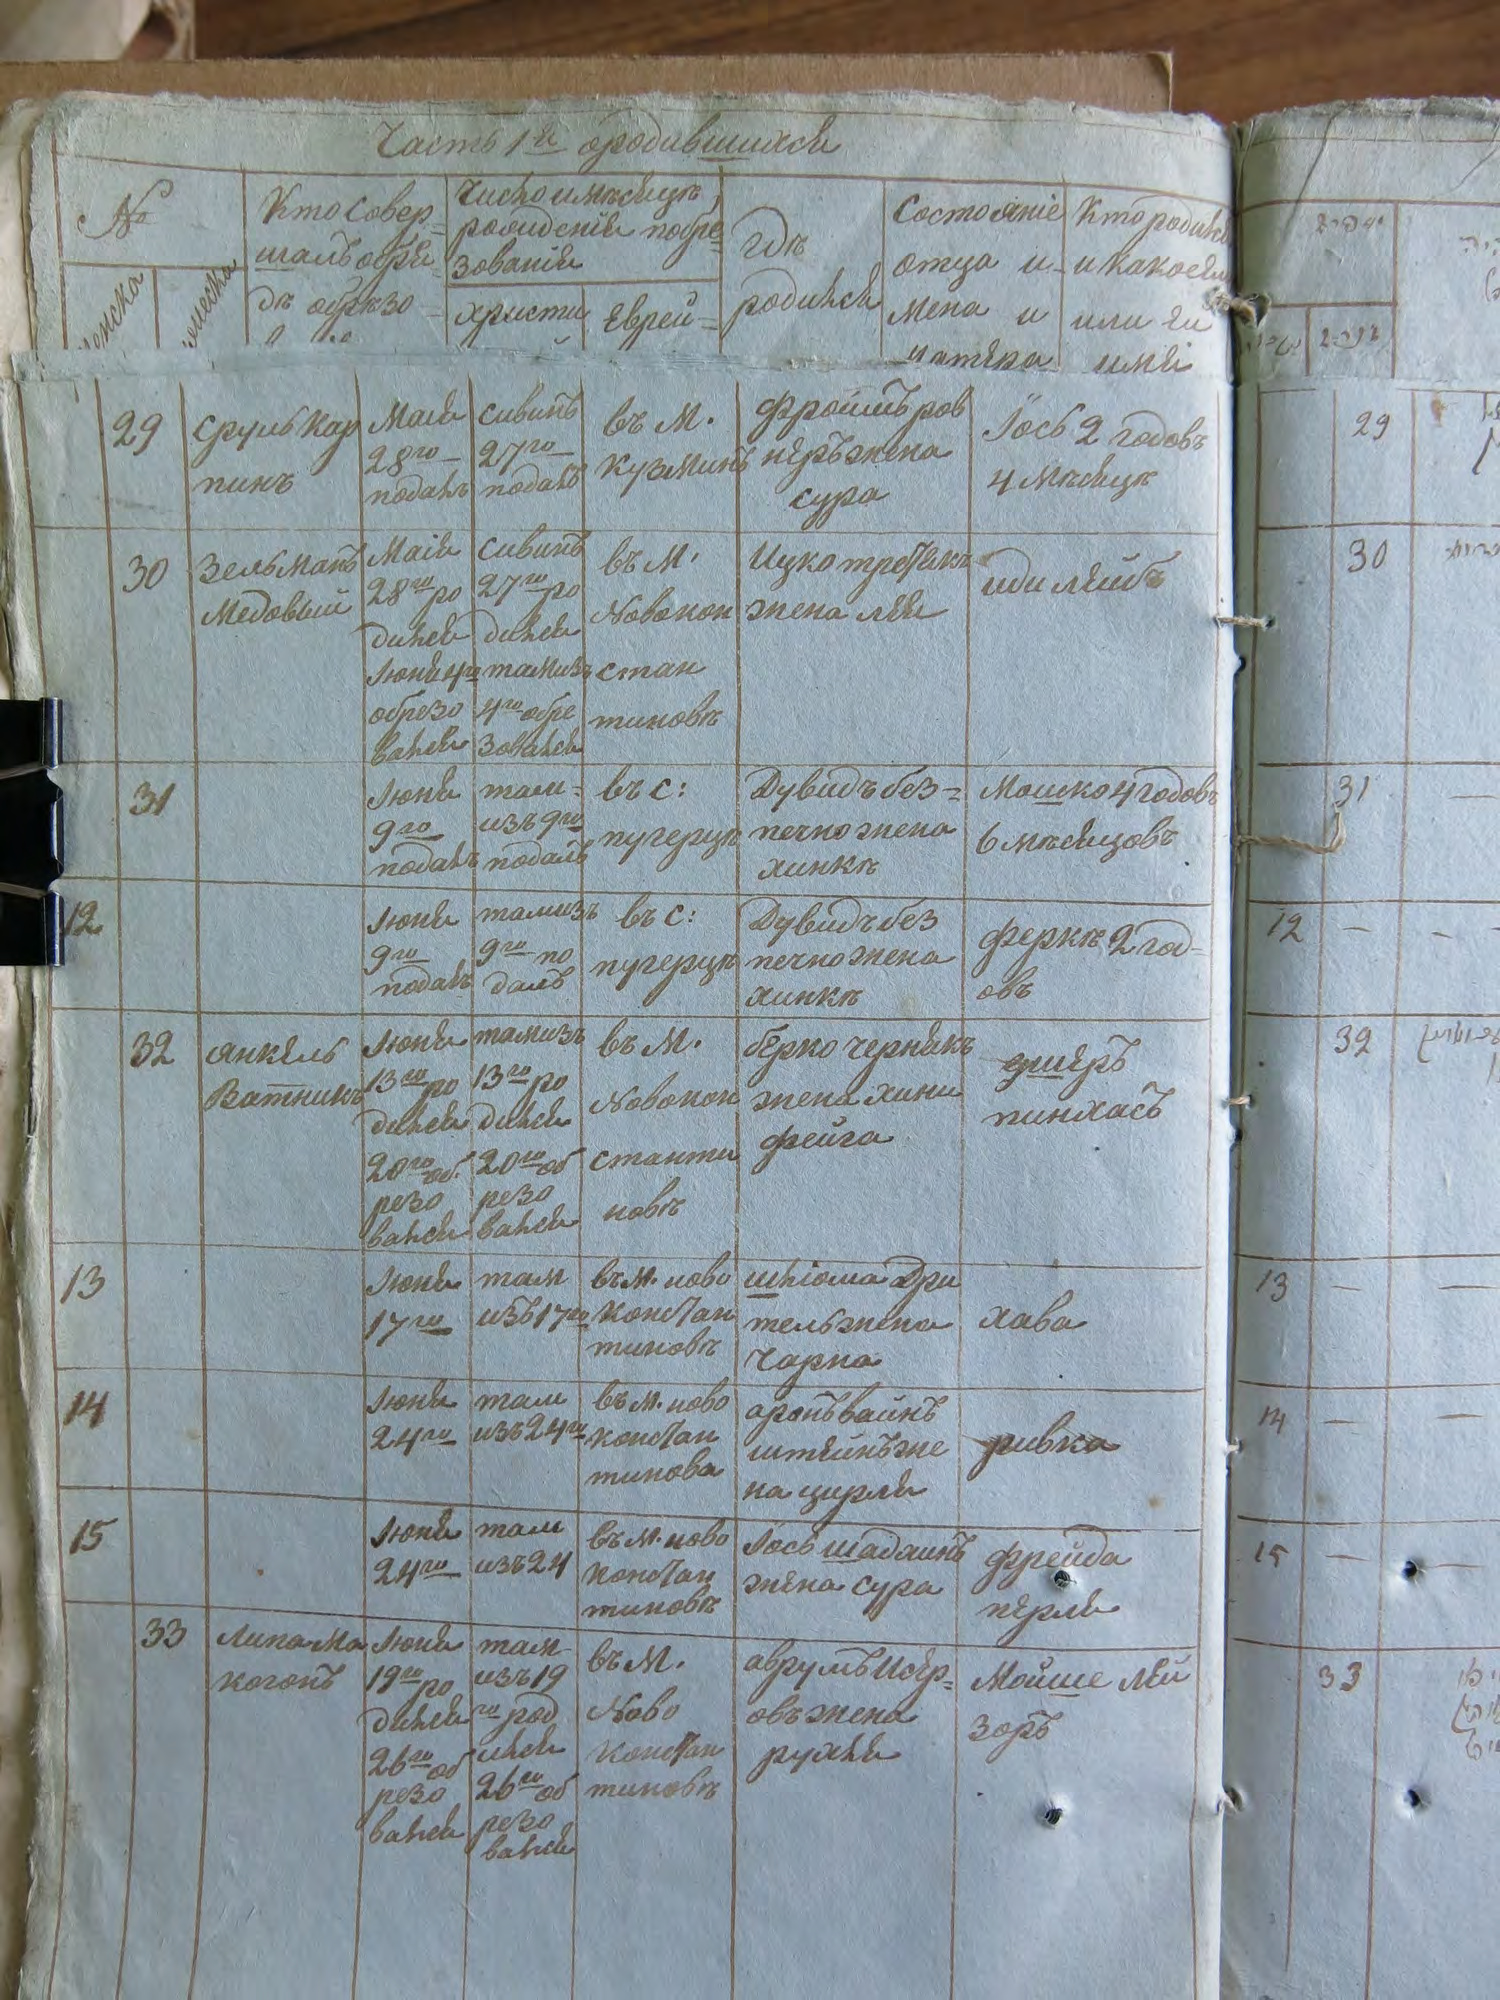 Часть 1я ородившихся
№
женска
мужеска
Кто совер-
шалъ обря-
дъ обрѣзо-
Число и мѣсяцъ,
рождения и обре-
зования
христи
Еврей-
гдѣ
родился
Состояние
отца и
мена и
матера
Кто родился
и какое ему
или ей
имя
29
Сруль Кар
пинъ
Маiя
28го
подалъ
сивинъ
27го
подалъ
въ М.
Кузминъ
Фроимъ ров
неръ жена
сура
Iось 2 годовъ
4 мѣсяцъ
30
Зельманъ
Медовый
Маiя
28го ро
дился
Iюня 4го
обрезо
вался
сивинъ
27го ро
дился
тамизъ
4го обре
зовался
въ М.
Новокон
стан
тиновъ
Ицко третякъ
жена лея
иди лейбъ
31
Iюня
9го
подалъ
там-
изъ 9го
подалъ
въ с:
пугерцъ
Дувидъ без-
печно жена
хинкъ
Мошко 4 годовъ
6 мѣсяцовъ
12
Iюня
9го
подалъ
тамизъ
9го по
далъ
въ с:
пугерцъ
Дувидъ без
печно жена
хинкъ
феркъ 2 год-
овъ
32
Янкель
Ватникъ
Iюня
13го ро
дился
20го об
резо
вался
тамизъ
13го ро
дился
20го об
резо
вался
въ М.
Новокон
станти
новъ
берко чернякъ
жена хиня
фейга
пинхасъ
13
Iюня
17го
там
изъ 17го
въ м. ново
констан
тиновъ
шлiома Дри
тель жена
Чарна
хава
14
Iюня
24го
там
изъ 24го
въ м. ново
констан
тинова
аронъ вайнъ
штейнъ же
на цирля
ривка
15
Iюня
24го
там
изъ 24
въ м. ново
констан
тиновъ
Iось шадхинъ
жена сура
фрейда
перля
33
Липа Ма
когонъ
Iюня
19го ро
дился
26го об
резо
вался
там
изъ 19
го род
ился
26го об
резо
вался
въ М.
Ново
констан
тиновъ
аврумъ Исер-
овъ жена
рухля
Мойше лей
зоръ
29
30
31
12
32
13
14
15
33